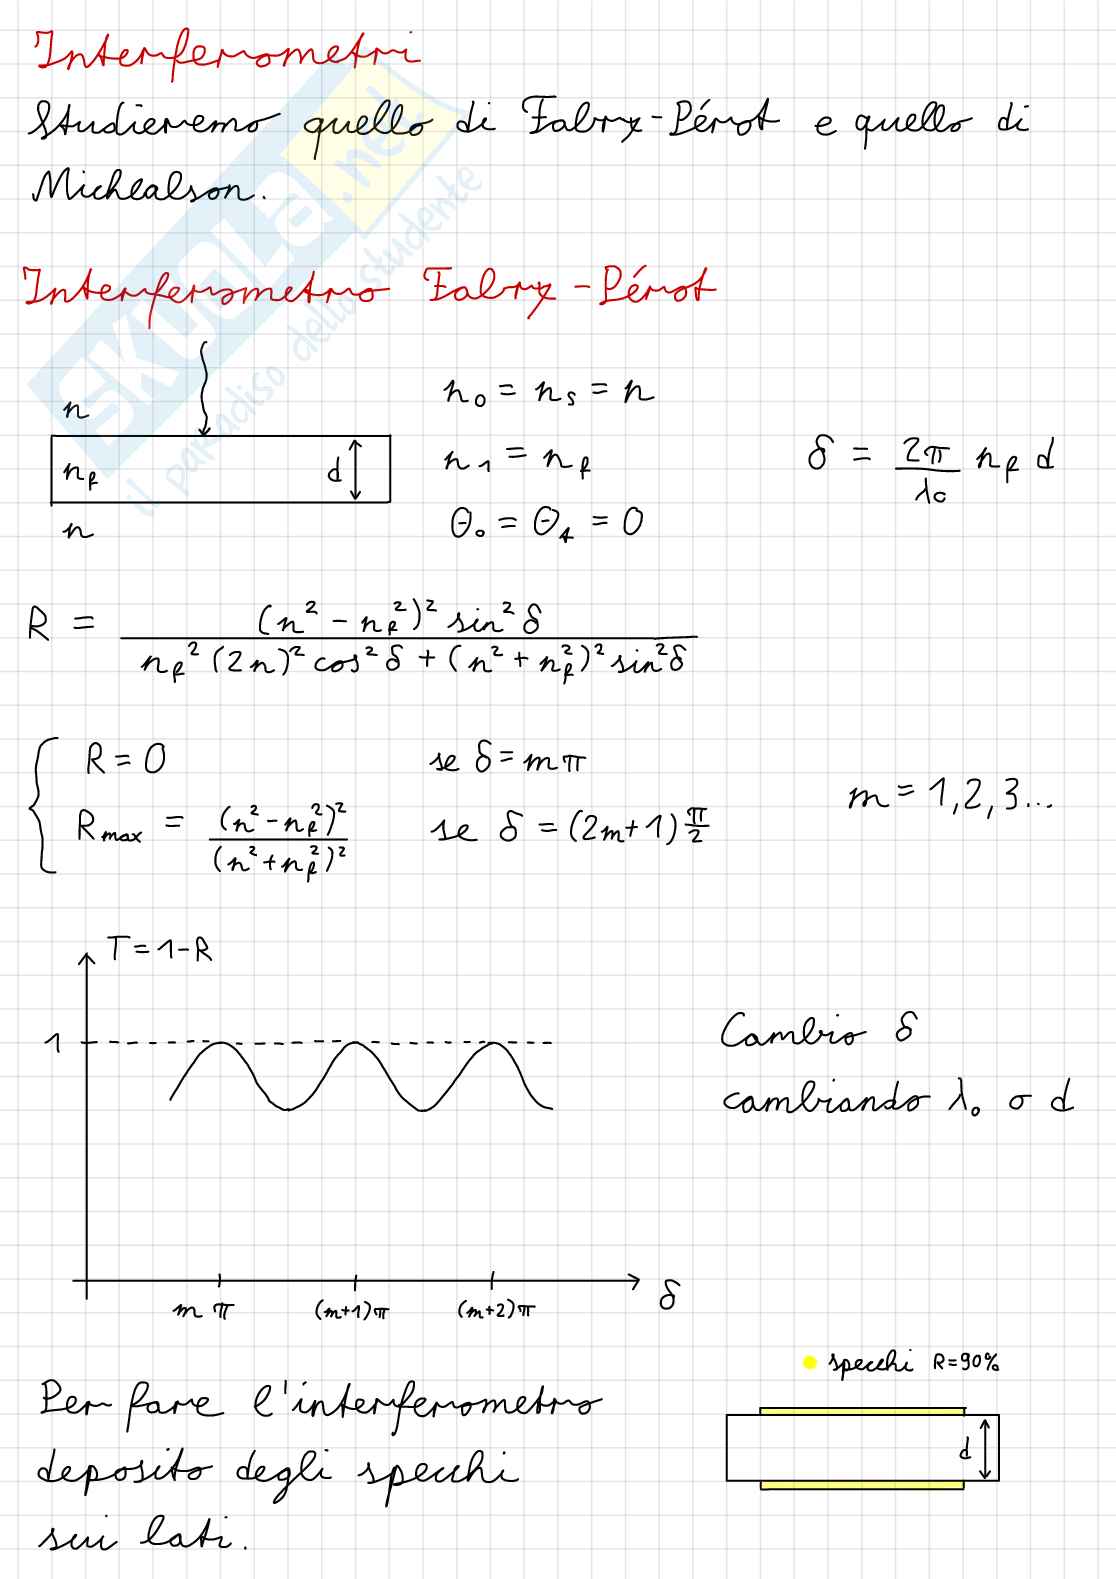 Interferometri
Studieremo quello di Fabry-Pérot e quello di
Michealson.
SKUOLA.net
il paradiso dello studente
Interferometro Fabry-Pérot
n
n_f d
n
n_0 = n_s = n
n_1 = n_f
θ_0 = θ_1 = 0
δ = 2π/λ_0 n_f d
R = (n² - n_f²)² sin² δ / n_f² (2n)² cos² δ + (n² + n_f²)² sin² δ
R = 0 se δ = mπ
R_max = (n² - n_f²)² / (n² + n_f²)² se δ = (2m+1) π/2
m = 1, 2, 3...
T = 1 - R
1
mπ (m+1)π (m+2)π δ
Cambio δ
cambiando λ_0 o d
Per fare l'interferometro
deposito degli specchi
sui lati.
specchi R=90%
d